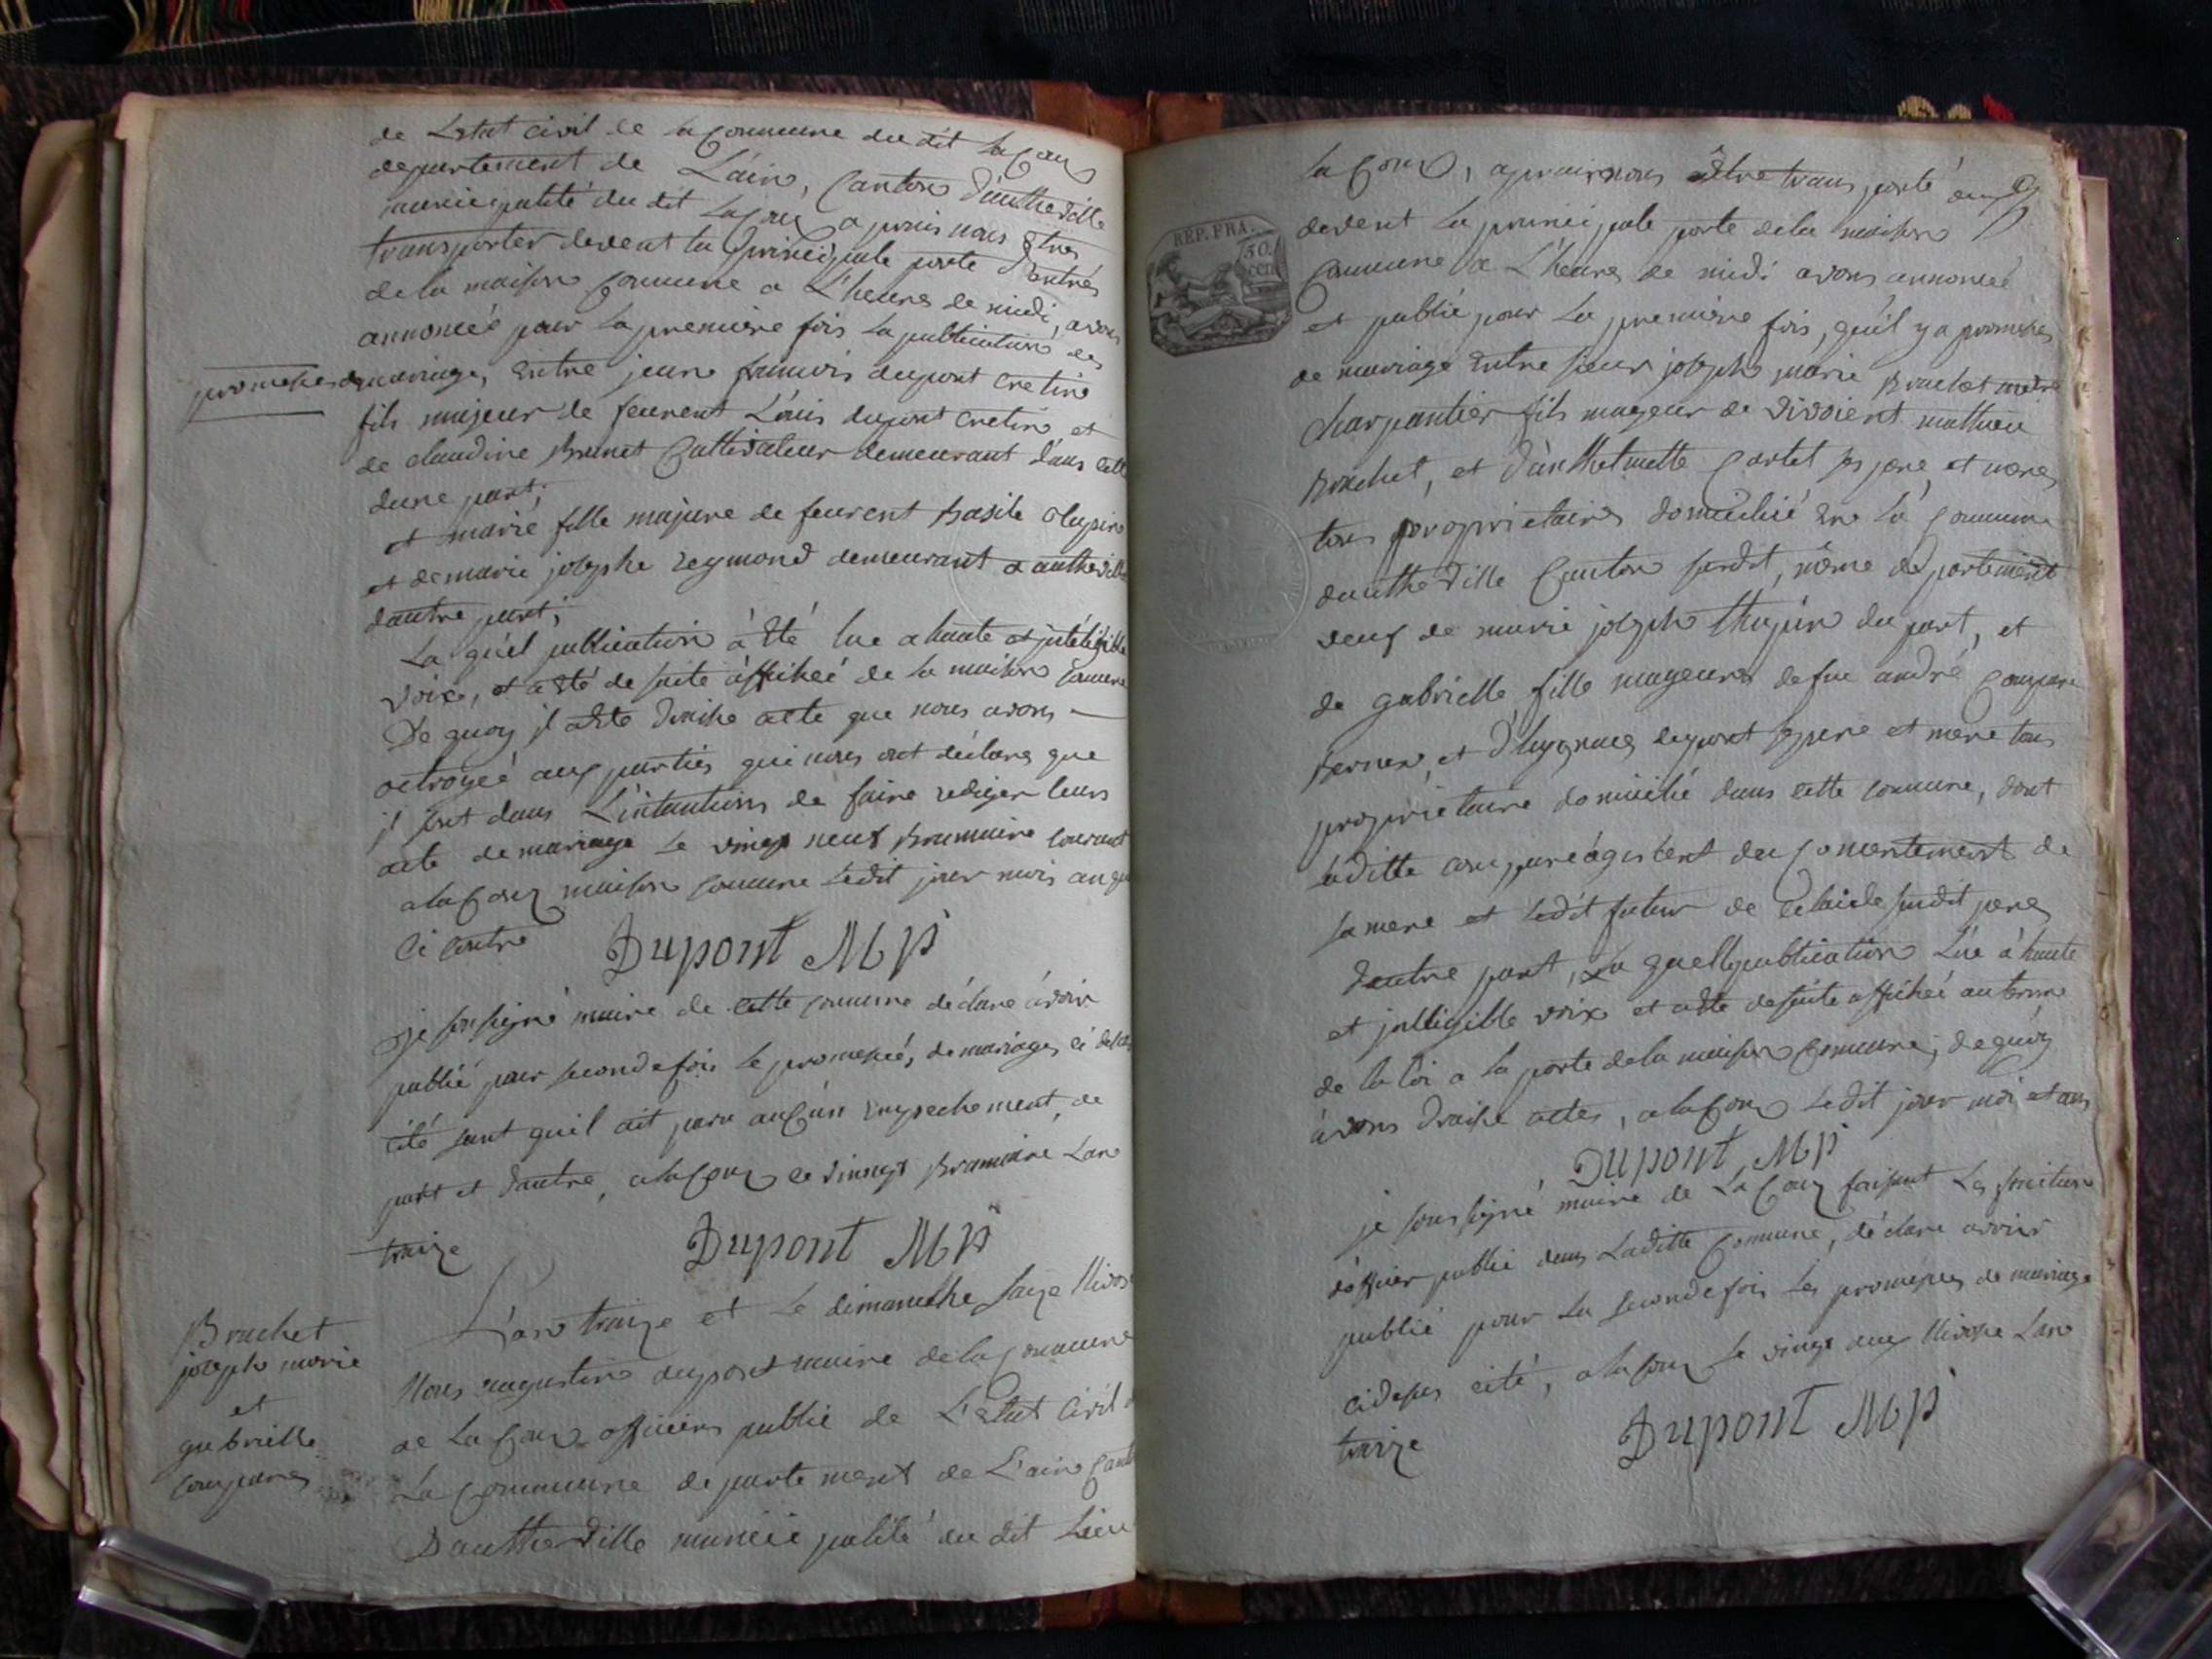 de Letat Civil de la Commune du dit la Coux
departement de L'ain, Canton D'authedille
municipalité du dit la Coux a prais nous êtres
transporter devent la principale porte D'entrés
de la maison Commune a L'heures de midi, avons
annoncéé pour la première fois la publication des
promeses de mariages, Entre jean francois dupont cretin
fils majeur de feurent Louis dupont cretin et
de claudine Brunet Cultivateur demeurant dans cette
dune part;
et marie fille majure de feurent Basile
et de marie josephe reymond demeurant a authedille
dautre part;
La quél publication à été lue a haute et
voix, et a été de suite affichéé de la maison Comune
De quoy il a été Draihe acte que nous avons
octroyéé aux parties qui nous ont déclare que
il sont dans L'intantions de faire rediger leurs
acte de mariage le vingt neuf Brumaire Courant
a la Coux maison Commune ledit jour mois an que
Ci Contre
Dupont M
je sousigné maire de cette commune déclare àvoir
publié pour seconde fois le promeses, de mariages ci desus
cité sant quil ait paru auqun enpechement, de
part et dautre, a la Coux ce vingt Brumaire Lan
traize
Dupont M
Brachet
joseph marie
et
gabrielle
Compares
L'an traize et le dimanche saize Nivose
Nous augustin dupont maire de la Commune
de La Coux officiers public de L'etat Civil
La Commune departement de L'ain Canton
Dauthedille municipalité du dit Lieu
la Coux, a prais nous être trans porté
REP. FRA.
50.
cen
devent la principale porte de la maison
Commune a L'heures de midi avons annoncéé
et publié pour la première fois, quil y a promeses
de mariage Entre sieur joseph marie Brachet metre
charpantier fils mageur de vivoient mathieu
Brachet, et d'anthelmette Cartet ses pere, et mere
tous proprietaires domicilié En la Commune
dauthedille Canton susdit, même departement
veuf de marie joseph du part, et
de gabrielle fille mageure de fue andré Compare
et dupont ses pere et mere tous
proprietaire domicilié dans cette commune, dont
laditte du Consentement de
sa mere et ledit futur de celui de susdit pere
dautre part, La quelle publication lüe à haute
et voix et a été de suite affichéé au terme
de la loi a la porte de la maison Commune; de quoy
àvons Draihe actes, a la Coux ledit jour moi et ans
Dupont M
je sousigné maire de La Coux faisant Les fonctions
d'officier public dans Laditte Commune, déclare avoir
publié pour la seconde fois les promeses de mariage
cidesus cité, a la Coux le vingt Nivose Lan
traize
Dupont M